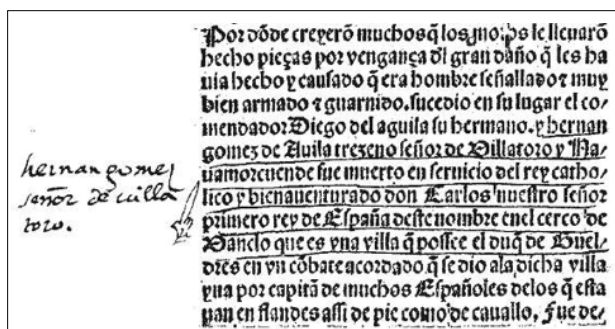 hernan gomez
señor de uilla
toro.
Por dōde creyerō muchos q̄ los moros le lleuarō
hecho pieças por vengança dl gran daño q̄ les ha
uia hecho y causado q̄ era hombre señallado ⁊ muy
bien armado ⁊ guarnido. sucedio en su lugar el co/
mendador Diego del aguila su hermano. y hernan
gomez de Auila trezeno señor de Villatoro y Na/
uamorcuende fue muerto en seruicio del rey catho/
lico y bienauenturado don Carlos nuestro señor
primero rey de España deste nombre enel cerco de
Vanclo que es vna villa q̄ possee el duq̄ de Guel/
dres en vn cōbate acordado q̄ se dio ala dicha villa
yua por capitā de muchos Españoles delos q̄ esta
uan en flandes assi de pie como de cauallo, fue de/